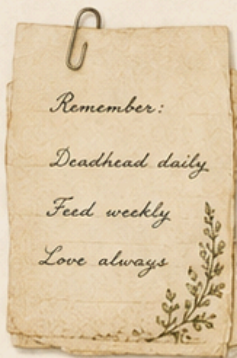 Remember:
Deadhead daily
Feed weekly
Love always